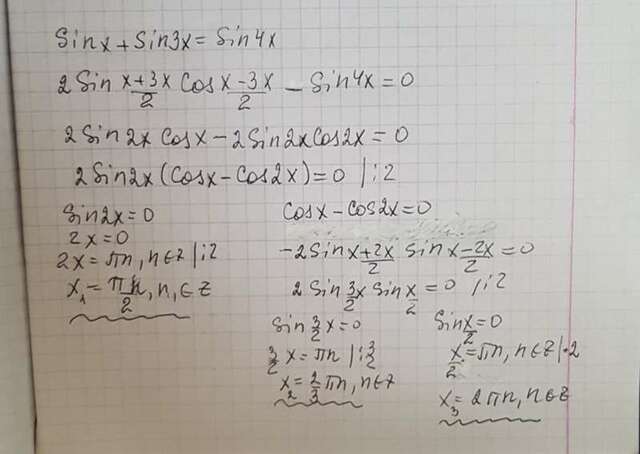 Sinx + Sin3x = Sin4x
2 Sin (x+3x)/2 Cos (x-3x)/2 - Sin4x = 0
2 Sin 2x Cosx - 2Sin2xCos2x = 0
2Sin2x (Cosx - Cos2x) = 0 | :2
Sin2x = 0
2x = 0
2x = πn, n∈z | :2
x₁ = πn/2, n, ∈ z
Cosx - Cos2x = 0
-2Sin (x+2x)/2 Sin (x-2x)/2 = 0
2 Sin 3/2 x Sin x/2 = 0 / :2
Sin 3/2 x = 0
3/2 x = πn | : 3/2
x₂ = 2/3 πn, n∈z
Sin x/2 = 0
x/2 = πn, n∈z | ·2
x₃ = 2πn, n∈z